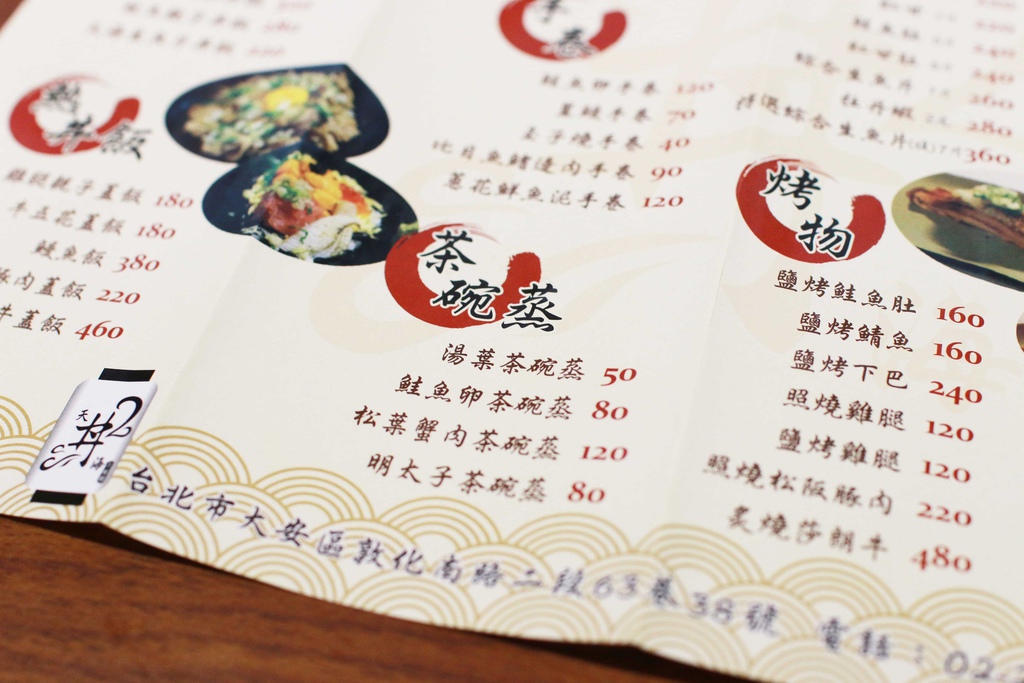 丼飯
雞腿親子蓋飯 180
牛五花蓋飯 180
鰻魚飯 380
豚肉蓋飯 220
丼蓋飯 460
手卷
鮭魚卵手卷 120
星鰻手卷 70
玉子燒手卷 40
比目魚鰭邊肉手卷 90
蔥花鮮魚泥手卷 120
茶碗蒸
湯葉茶碗蒸 50
鮭魚卵茶碗蒸 80
松葉蟹肉茶碗蒸 120
明太子茶碗蒸 80
240
240
綜合生魚片 260
牡丹蝦 280
特選綜合生魚片 360
烤物
鹽烤鮭魚肚 160
鹽烤鯖魚 160
鹽烤下巴 240
照燒雞腿 120
鹽烤雞腿 120
照燒松阪豚肉 220
炙燒莎朗牛 480
天丼海
台北市大安區敦化南路二段63巷38號 電話：02